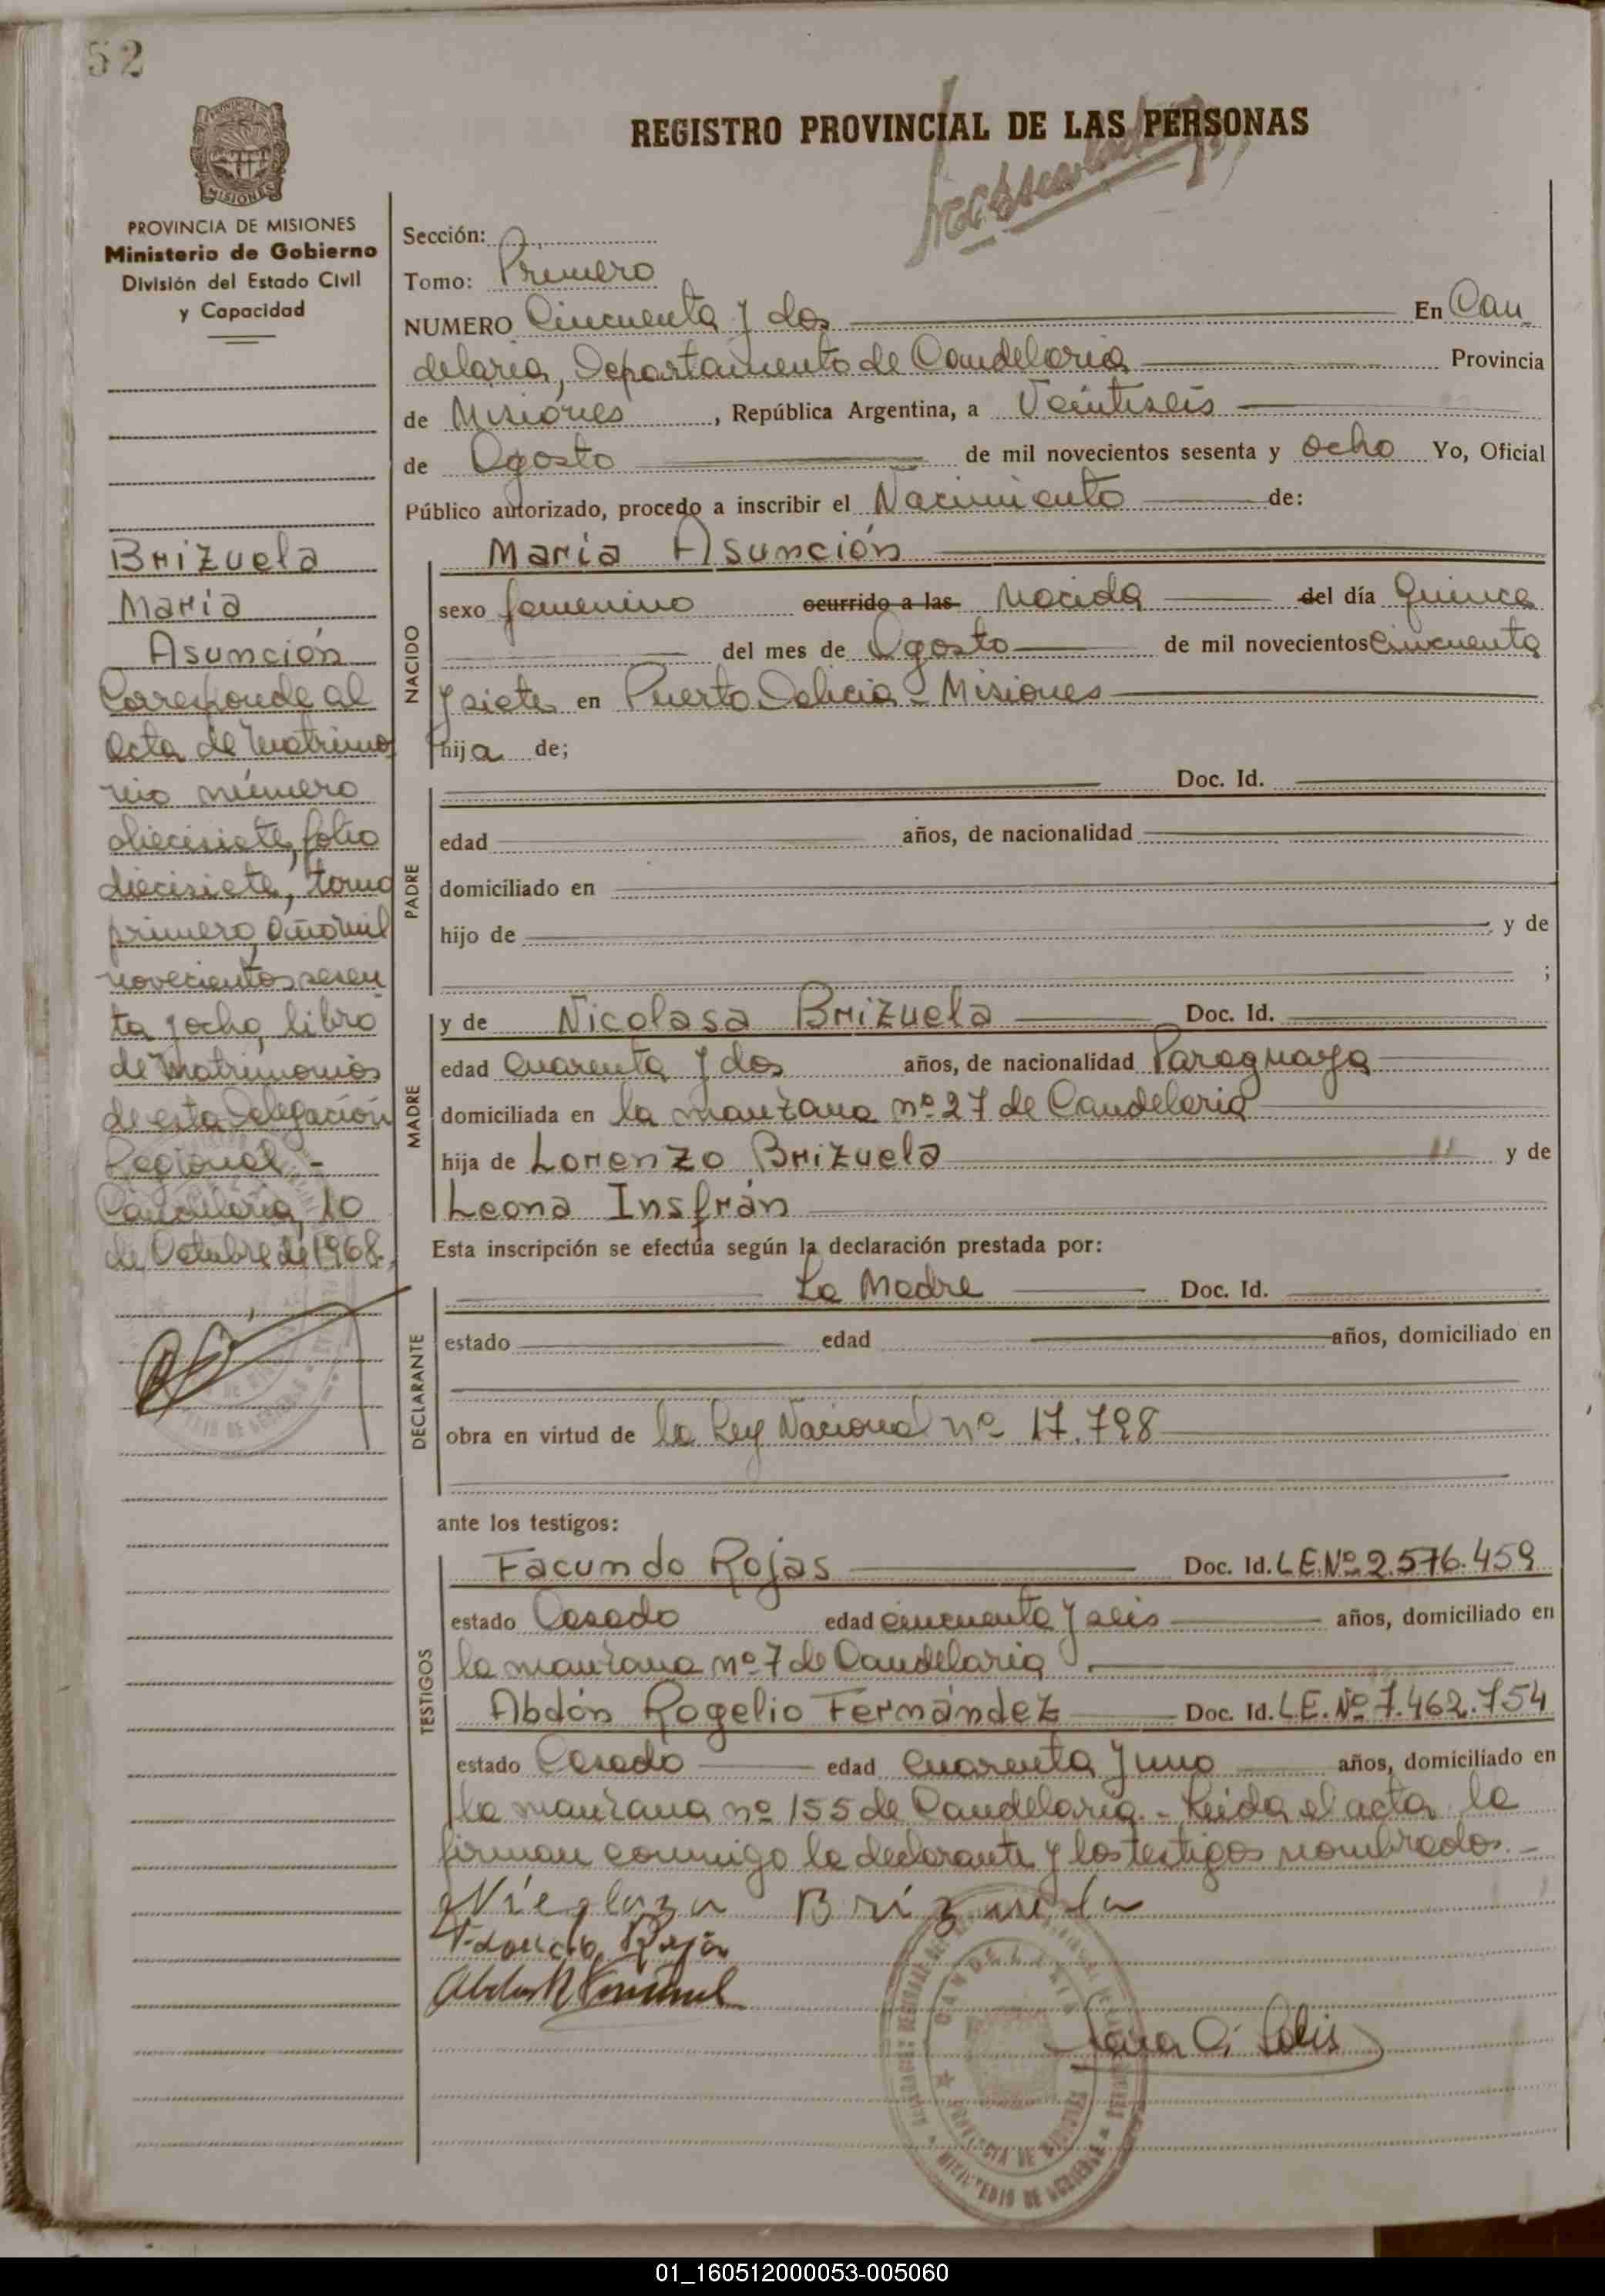 52
PROVINCIA DE MISIONES
Ministerio de Gobierno
División del Estado Civil
y Capacidad
Brizuela
María
Asunción
Corresponde al
acta de matrimo
nio número
diecisiete, folio
diecisiete, tomo
primero, año mil
novecientos sesen
ta y ocho, libro
de Matrimonios
de esta Delegación
Regional.-
Candelaria, 10
de Octubre de 1968.
REGISTRO PROVINCIAL DE LAS PERSONAS
Sección:
Tomo: Primero
NUMERO Cincuenta y dos En Can
delaria, Departamento de Candelaria Provincia
de Misiones, República Argentina, a Veintiseis
de Agosto de mil novecientos sesenta y ocho Yo, Oficial
Público autorizado, procedo a inscribir el Nacimiento de:
NACIDO
María Asunción
sexo femenino ocurrido a las Nacida del día Quince
del mes de Agosto de mil novecientos cincuenta
y siete en Puerto Delicia - Misiones
hija de;
PADRE
Doc. Id.
edad años, de nacionalidad
domiciliado en
hijo de y de
;
MADRE
y de Nicolasa Brizuela Doc. Id.
edad Cuarenta y dos años, de nacionalidad Paraguaya
domiciliada en la manzana nº 27 de Candelaria
hija de Lorenzo Brizuela y de
Leona Insfrán
Esta inscripción se efectúa según la declaración prestada por:
DECLARANTE
La Madre Doc. Id.
estado edad años, domiciliado en
obra en virtud de la Ley Nacional nº 17.798
ante los testigos:
TESTIGOS
Facundo Rojas Doc. Id. L.E. Nº 2.576.459
estado Casado edad cincuenta y seis años, domiciliado en
la manzana nº 7 de Candelaria
Abdón Rogelio Fernández Doc. Id. L.E. Nº 7.462.754
estado Casado edad cuarenta y uno años, domiciliado en
la manzana nº 155 de Candelaria.- Leida el acta la
firman conmigo la declarante y los testigos nombrados.-
Brizuela
Rojas
CANDELARIA
PROVINCIA DE MISIONES
Solis
01_160512000053-005060